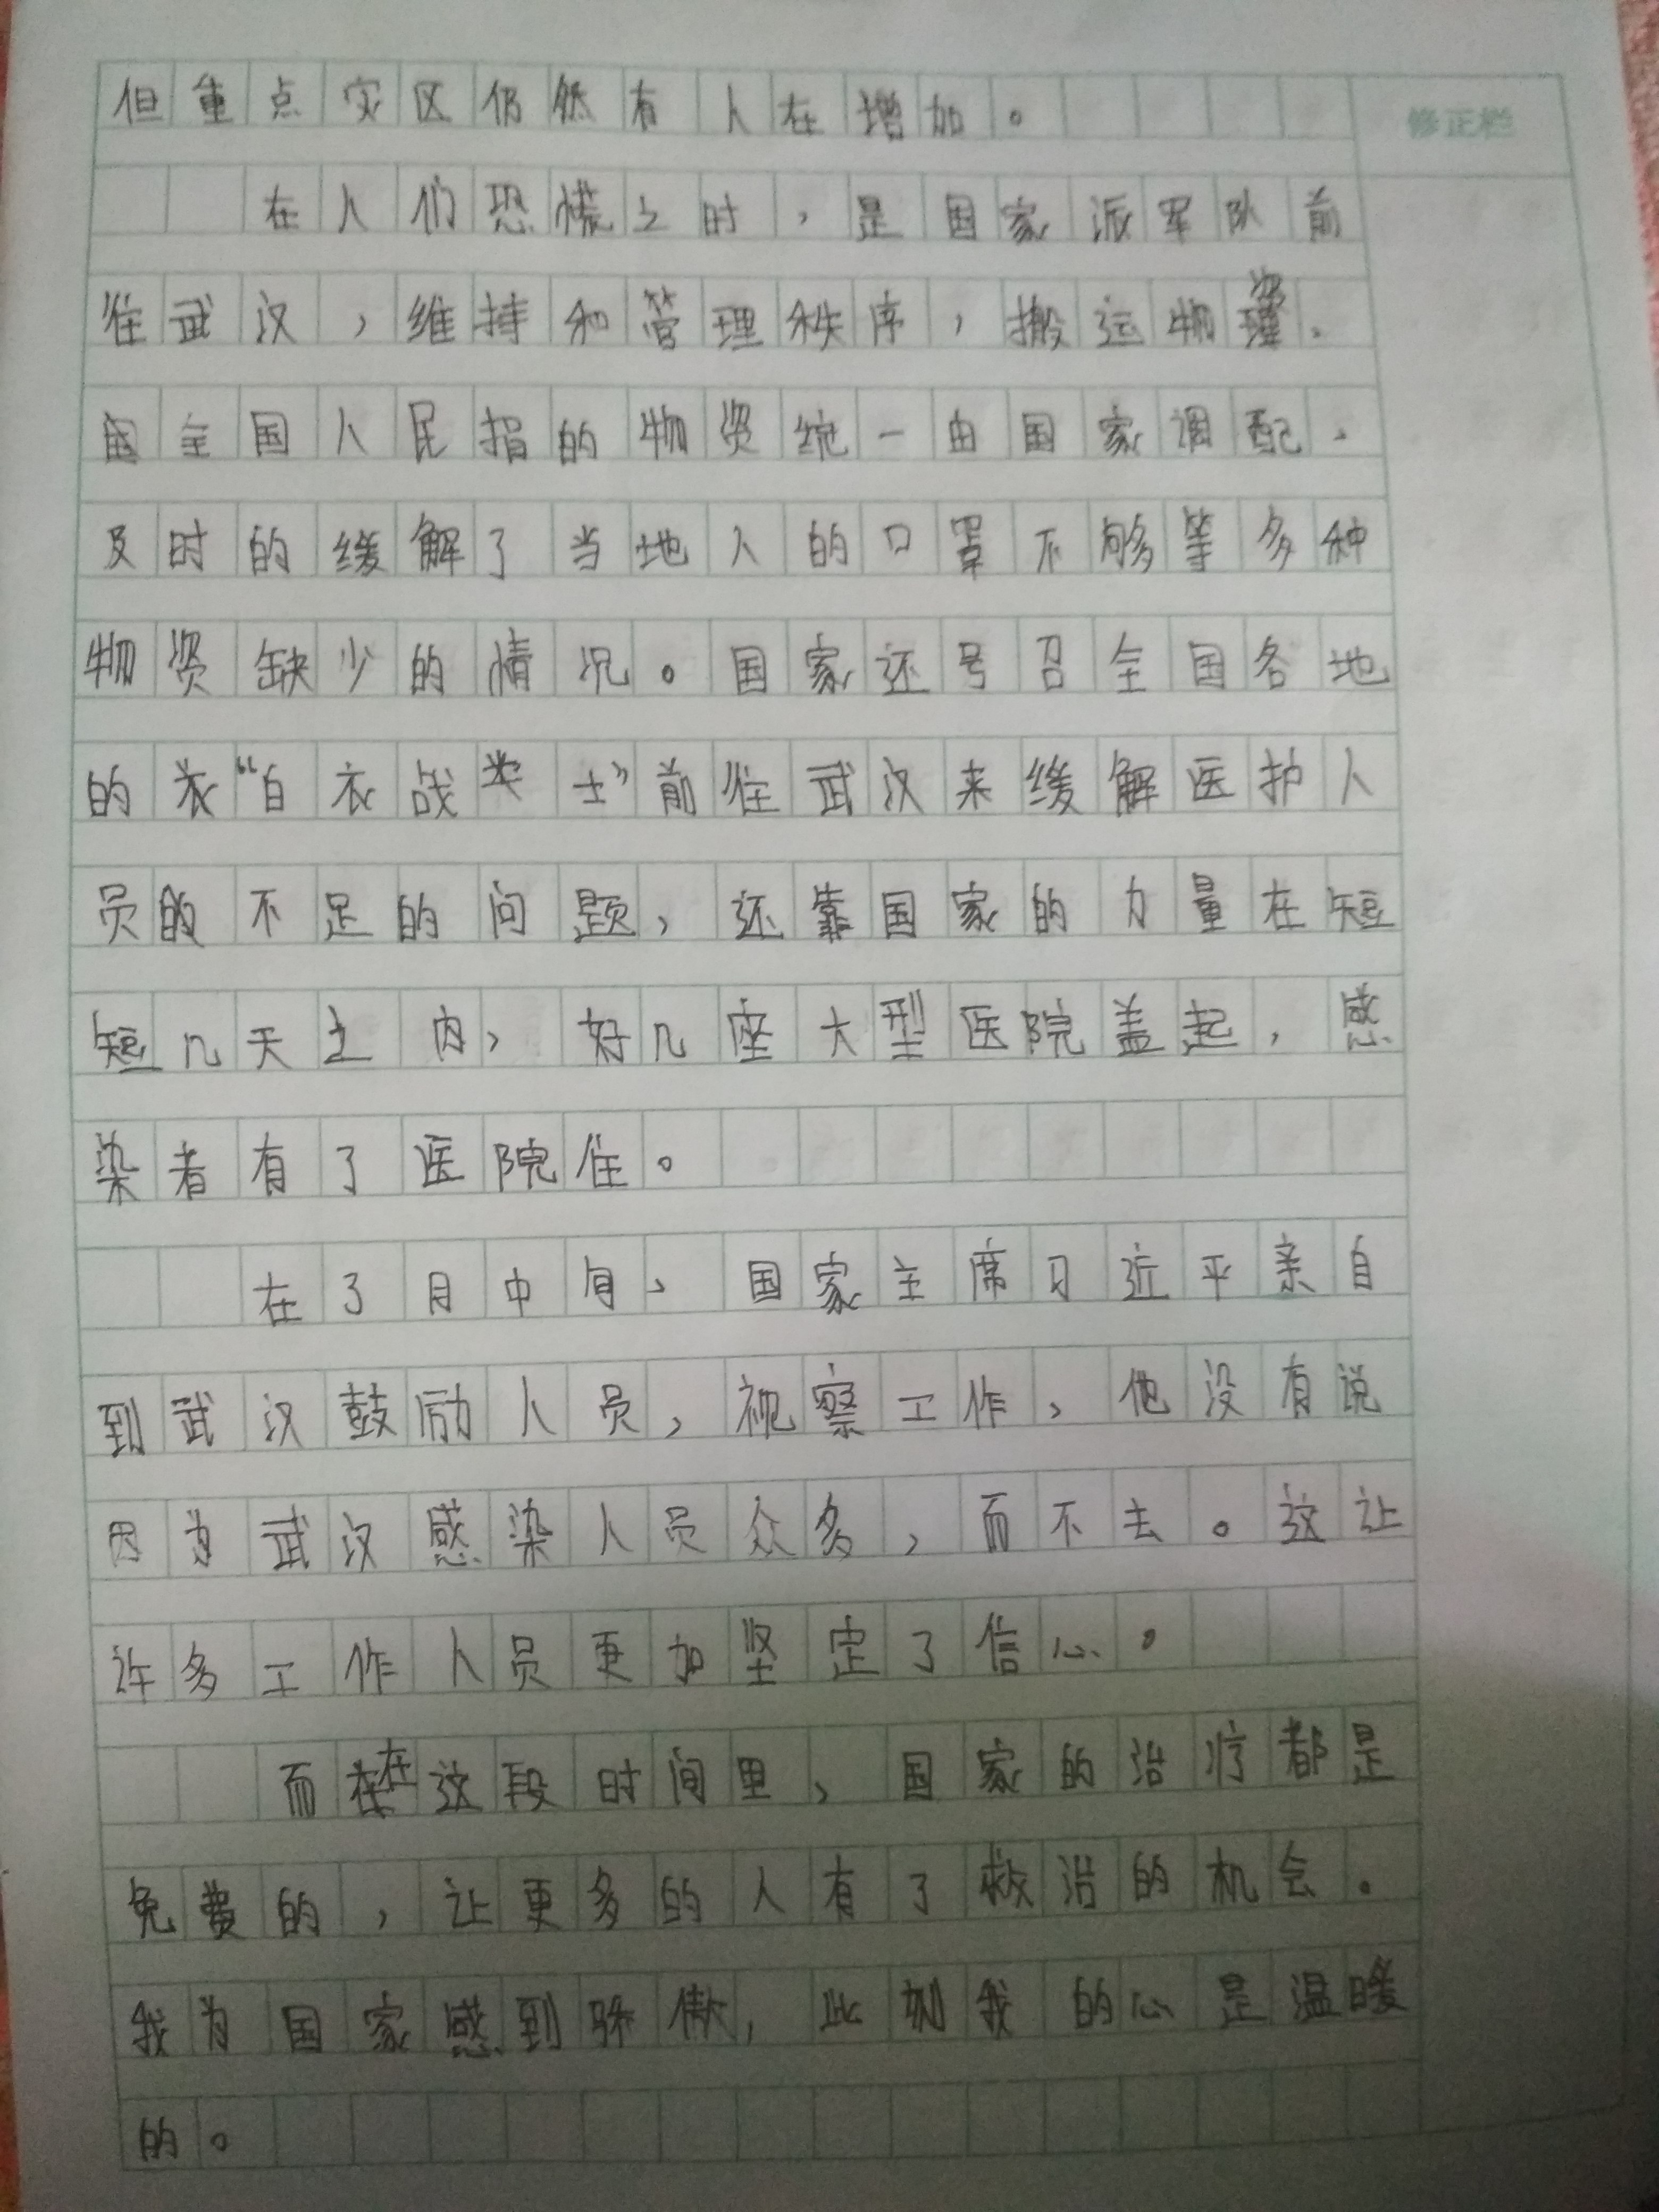 但重点灾区仍然有人在增加。
修正栏
在人们恐慌之时，是国家派军队前
往武汉，维持和管理秩序，搬运物资。
全国人民捐的物资统一由国家调配，
及时的缓解了当地人的口罩不够等多种
物资缺少的情况。国家还号召全国各地
的“白衣战士”前往武汉来缓解医护人
员不足的问题，还靠国家的力量在短
短几天之内，好几座大型医院盖起，感
染者有了医院住。
在3月中旬，国家主席习近平亲自
到武汉鼓励人员，视察工作，他没有说
因为武汉感染人员众多，而不去。这让
许多工作人员更加坚定了信心。
而在这段时间里，国家的治疗都是
免费的，让更多的人有了救治的机会。
我为国家感到骄傲，此刻我的心是温暖
的。